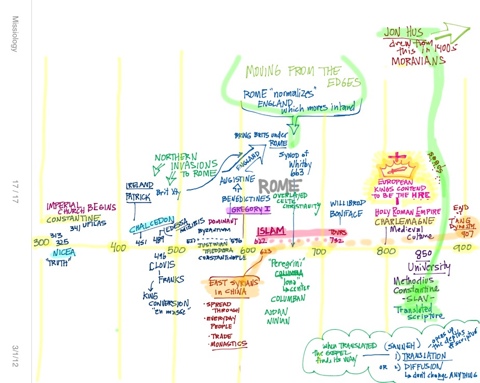 Missiology
17 / 17
3/1/12
JON HUS
drew from
this in 1400s
MORAVIANS
MOVING FROM THE
EDGES
ROME "normalizes"
ENGLAND
which moves inland
BEING BRITS under
ROME
NORTHERN
INVASIONS
TO ROME
ENGLAND
SYNOD of
Whitby
663
IRELAND
PATRICK
AUGUSTINE
BENEDICTINES
GREGORY I
ROME
OVERLAYED
CELTIC
CHRISTIANITY
WILLIBROD
BONIFACE
EUROPEAN
KINGS CONTEND
TO BE THE HRE
HOLY ROMAN EMPIRE
CHARLEMAGNE
Medieval
Culture
END of
TANG
DYNASTY
907
IMPERIAL
CHURCH BEGINS
CONSTANTINE
341 UFILAS
313
325
NICEA
"TRUTH"
CHALCEDON
451
EDESSA
489
DOMINANT
BYZANTIUM
JUSTINIAN
THEODORA
CONSTANTINOPLE
ISLAM
622
TOURS
732
300
400
500
600
700
800
900
496
CLOVIS
FRANKS
KING
CONVERSION
"en masse"
635
EAST SYRIANS
in CHINA
• SPREAD
THROUGH
• EVERYDAY
PEOPLE
• TRADE
• MONASTICS
"Peregrini"
COLUMBA
Iona
COLUMBAN
AIDAN
NINIAN
850
University
Methodios
Constantine
-SLAV-
Translated
Scripture
WHEN TRANSLATED
the GOSPEL
finds its way
(SANNEH)
1) TRANSLATION
OR 2) DIFFUSION
↳ don't change ANYTHING